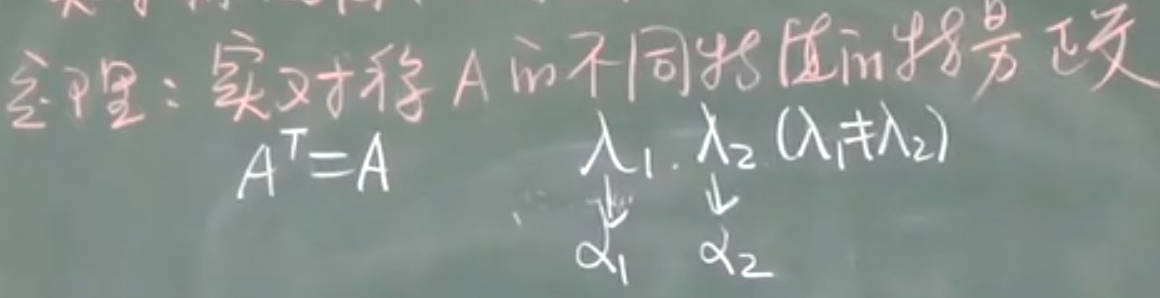 定理：实对称A的不同特值的特量正交
Aᵀ=A λ₁. λ₂ (λ₁≠λ₂)
↓ ↓
α₁ α₂